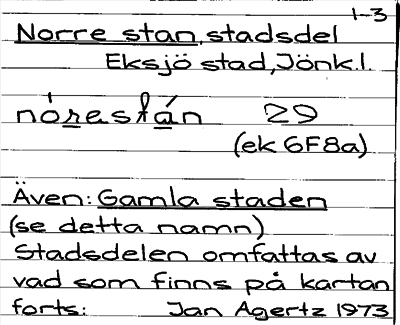 1-3
Norre stan, stadsdel
Eksjö stad, Jönk.l.
nórestán 29
(ek 6F8a)
Även: Gamla staden
(se detta namn)
Stadsdelen omfattas av
vad som finns på kartan
forts: Jan Agertz 1973